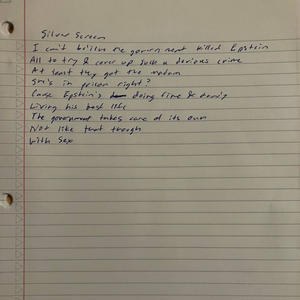 Silver Screen
I can't believe the government killed Epstein
All to try & cover up such a devious crime
At least they got the madam
She's in prison right?
Cause Epstein's doing fine & dandy
Living his best life
The government takes care of its own
Not like that though
With Sex